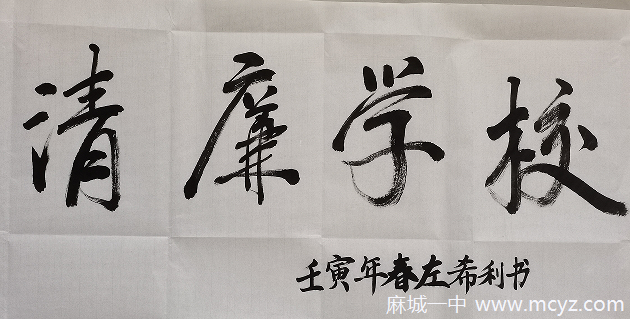 清廉学校
壬寅年春左希利书
麻城一中 www.mcyz.com